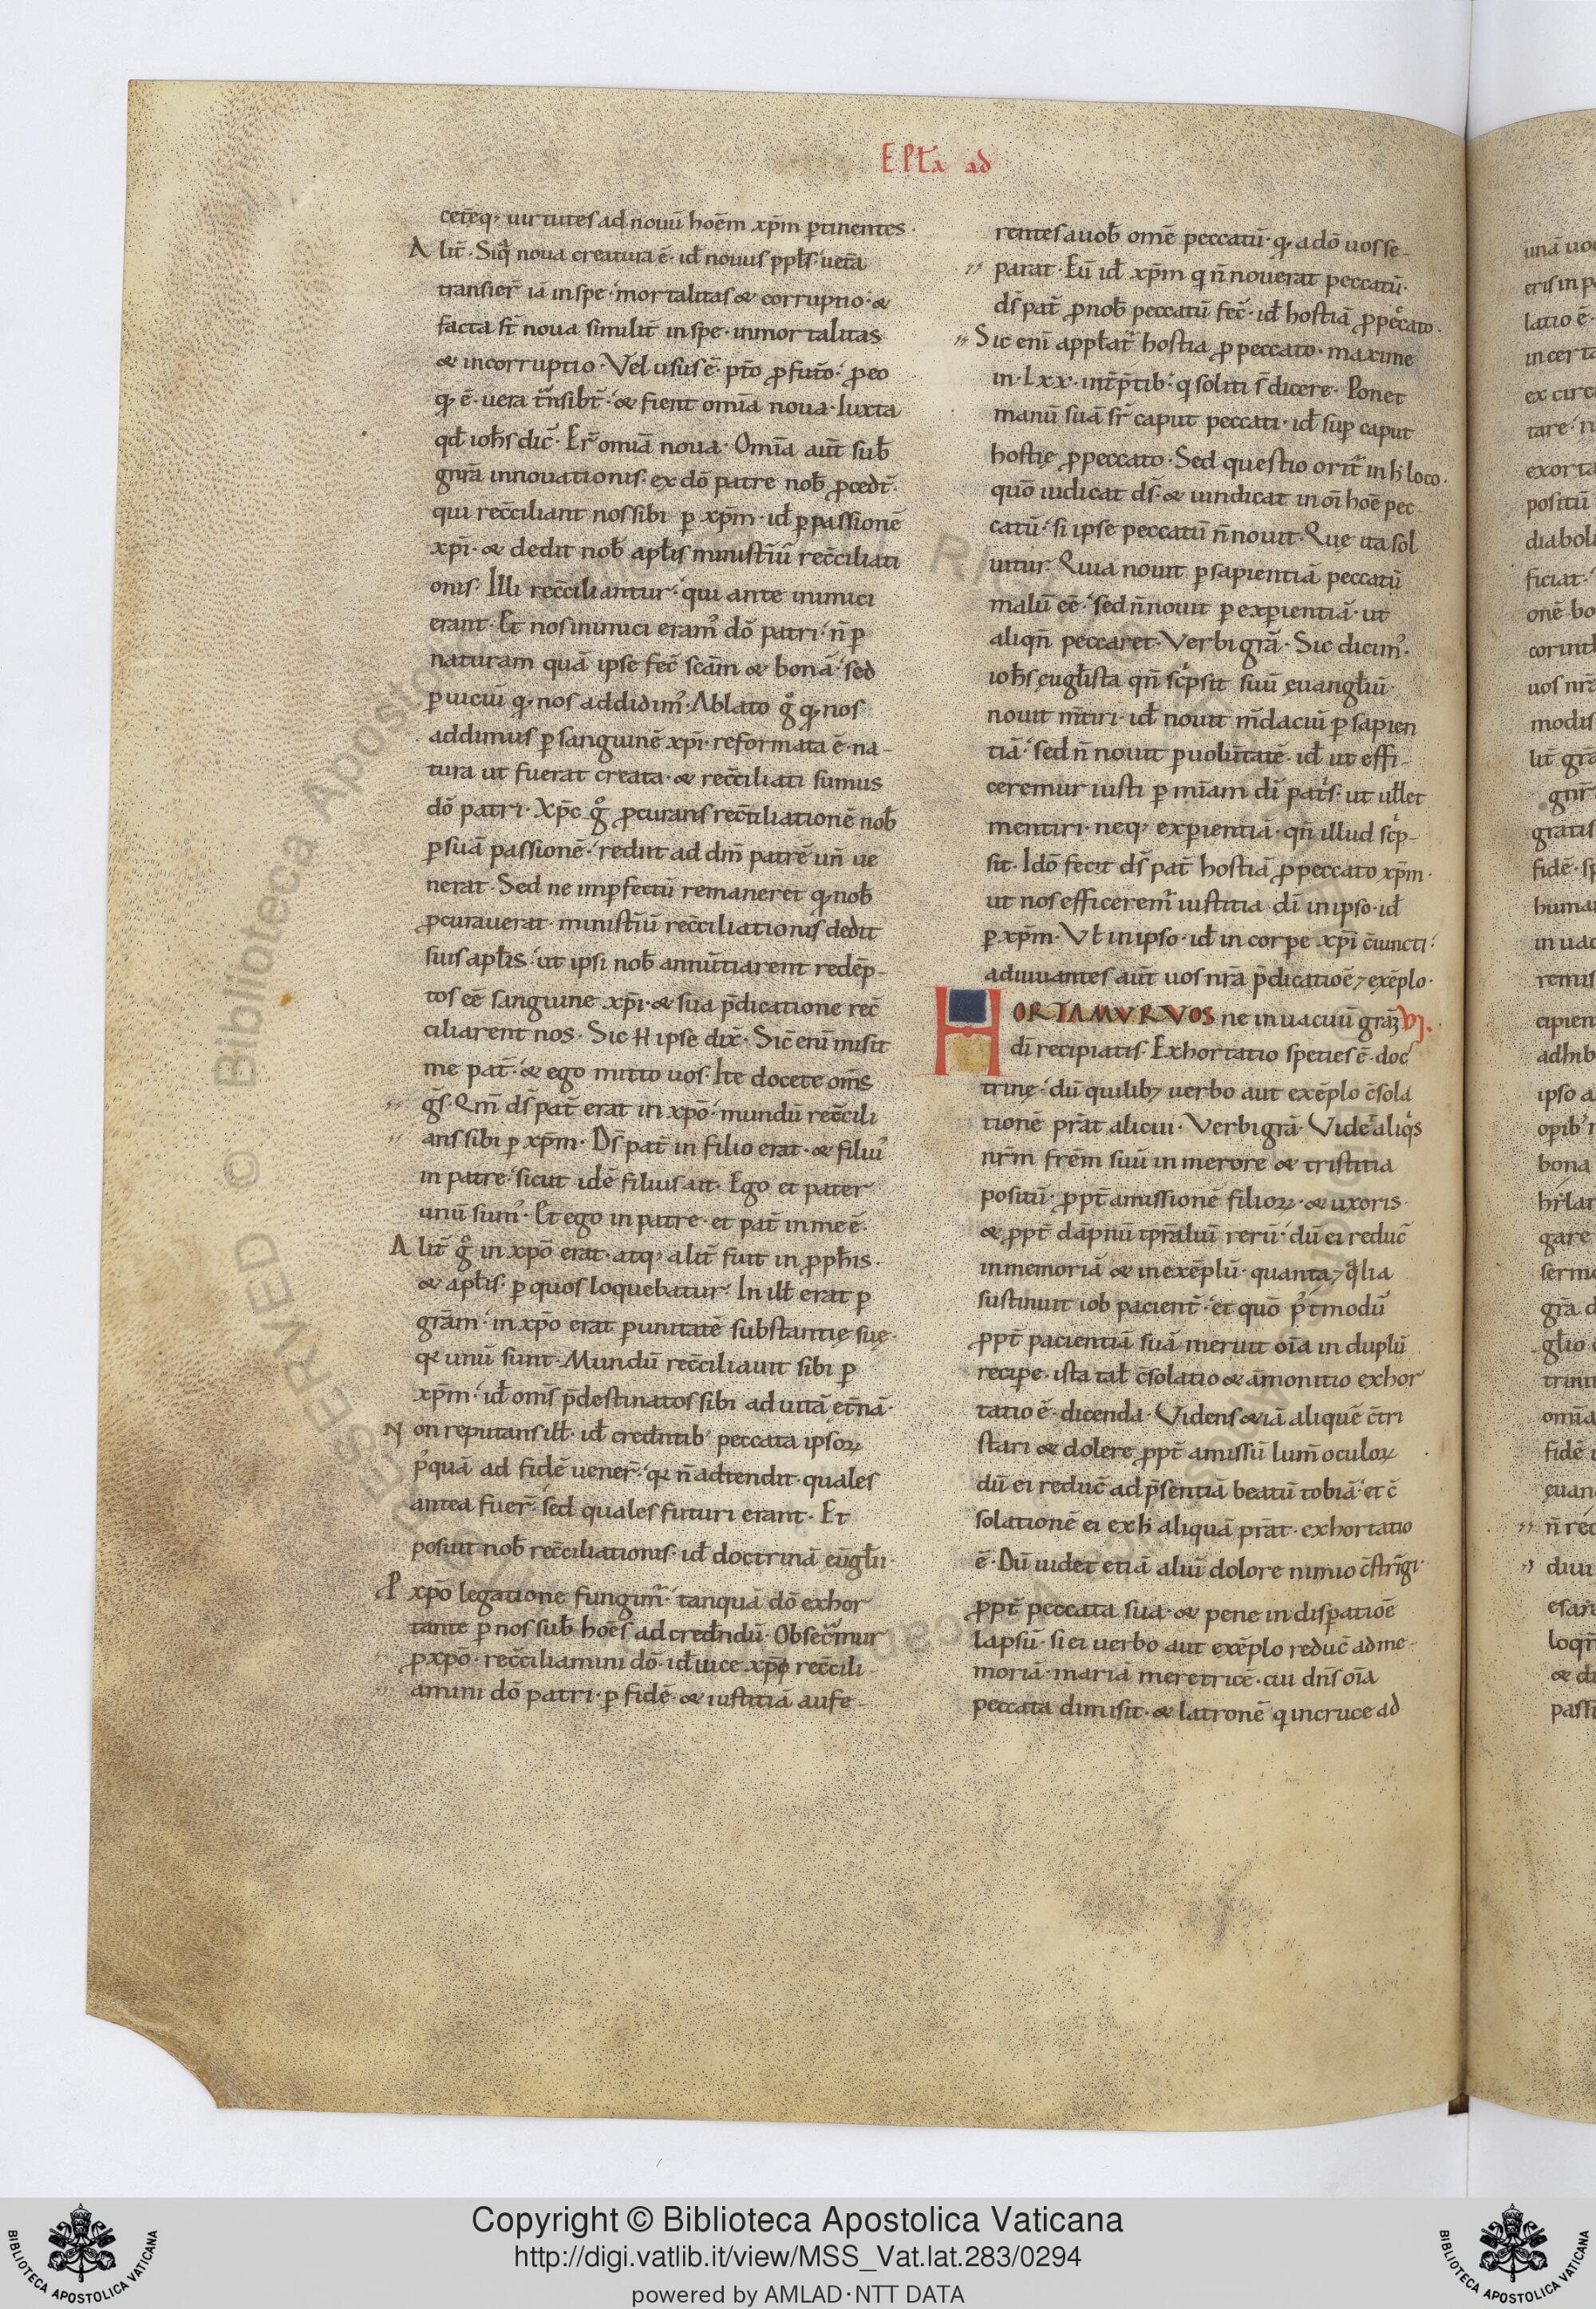 EPLa ad
cet̄eq; uirtutes ad nouū hoēm xp̄m ꝑtinentes.
Alit̄. Siq̄ noua creatura ē. id̄ nouus ppls̄. uet̄a
transier̄ iā in spe mortalitas & corruptio. &
facta st̄ noua similit̄ in spe. inmortalitas
& incorruptio. Vel usus ē. p̄to ꝓ fut̄o. ꝓ eo
qđ ē. uera t̄nsibt̄. & fient om̄ia noua. Iuxta
qđ ioh̄s dic̄. Er̄ om̄ia noua. Om̄ia aūt sub̄
gn̄rā innouationis. ex dō patre nob̄ ꝓcedt̄.
qui rec̄ciliant nos sibi ꝑ xp̄m. id̄ ꝑ passionē
xp̄i. & dedit nob̄ apl̄is minist̄iū rec̄ciliati
onis. Illi rec̄ciliantur. qui ante inimici
erant. Et nos inimici eram᾽ dō patri. n̄ ꝑ
naturam quā ipse fec̄ sc̄am & bonā. sed
ꝑ uiciū qđ nos addidim᾽. Ablato gͦ qđ nos
addimus ꝑ sanguinē xp̄i. reformata ē. na-
tura ut fuerat creata. & rec̄ciliati sumus
dō patri. Xp̄c gͦ ꝓcurans rec̄tiliationē nob̄
ꝑ suā passionē. rediit ad dm̄ patrē un̄ ue
nerat. Sed ne imꝑfectū remaneret qđ nob̄
ꝓcurauerat. minist̄iū rec̄ciliationis dedit
suis apl̄is. ut ipsi nob̄ annūtiarent redēp-
tos eē sanguine xp̄i. & sua p̄dicatione rec̄
ciliarent nos. Sic H ipse dix̄. Sic̄ enī misit
me pat̄. & ego mitto uos. Ite docete om̄s
ḡs. Qm̄ ds̄ pat̄ erat in xp̄o. mundū rec̄cili
ans sibi ꝑ xp̄m. Ds̄ pat̄ in filio erat. & filiu᾽
in patre. sicut idē filius ait. Ego et pater
unū sum᾽. Et ego in patre. et pat̄ in me ē.
Alit̄ gͦ in xp̄o erat. atq; alit̄ fuit in ꝓph̄is.
& apl̄is. ꝑ quos loquebatur. In ill̄ erat ꝑ
grām. in xp̄o erat ꝑ unitatē substantię suę.
qr unū sunt. Mundū rec̄ciliauit sibi ꝑ
xp̄m. id̄ om̄s p̄destinatos sibi ad uitā et̄nā.
Non reputans ill̄. id̄ cred̄ntib᾽ peccata ipsoꝝ
p᾽quā ad fidē uener̄. qr n̄ adtendit quales
antea fuer̄. sed quales futuri erant. Et
posuit nob̄ rec̄ciliationis. id̄ doctrinā eūgl̄ii.
P xp̄o legatione fungim̄. tanquā dō exhor
tante ꝑ nos sub̄ hoēs ad cred̄ndū. Obsec̄mur
ꝓ xp̄o. rec̄ciliamini dō. id̄ uice xp̄o rec̄cili-
amini dō patri. ꝑ fidē. & iustitiā aufe-
rentes a uob̄ omē peccatū. qđ a dō uos se-
parat. Eū id̄ xp̄m q n̄ nouerat peccatū.
ds̄ pat̄ ꝓ nob̄ peccatū fec̄. id̄ hostiā ꝓ pec̄cato.
Sic enī appl̄at̄ hostia ꝓ peccato. maxime
in. Lxx. int̄p̄tib᾽. q soliti s̄ dicere. Ponet
manū suā sr̄ caput peccati. id̄ suꝑ caput
hostię ꝓ peccato. Sed questio orit̄ in h loco.
quō iudicat ds̄. & uindicat in oī hoē pec
catū. si ipse peccatū n̄ nouit. Quę ita sol
uitur. Quia nouit ꝑ sapientiā peccatū
malū eē. sed n̄ nouit ꝑ exꝑientiā. ut
aliqn̄ peccaret. Verbi grā. Sic dicim᾽.
ioh̄s euglīsta qn̄ sc̄psit suū euangl̄iū.
nouit m̄tiri. id̄ nouit m̄daciū ꝑ sapien
tiā. sed n̄ nouit ꝑ uolūtatē. id̄ ut effi-
ceremur iusti ꝑ mīam dī pat̄s. ut ull̄et
mentiri. neq; exꝑientiā. qn̄ illud sc̄p-
sit. Idō fecit ds̄ pat̄ hostiā ꝓ peccato xp̄m.
ut nos efficerem̄ iustitia dī in ipso. id̄
ꝑ xp̄m. Vl̄ in ipso. id̄ in corpe xp̄i c̄iuncti.
adiuuantes aūt uos nr̄a p̄dicatioē ⁊ exēplo.
HORTAMVR VOS ne in uacuū grāꝫ VI.
dī recipiatis. Exhortatio speties ē. doc
trinę. dū quilibꝫ uerbo aut exēplo c̄sola
tionē p̄rat alicui. Verbi grā. Videt̄ aliqs̄
nr̄m frēm suū in merore & tristitia
positū. ꝓpt̄ amissionē filioꝝ. & uxoris.
& ꝓpt̄ dāpnū tp̄ralium̄ rerū. dū ei reduc̄
in memoriā & in exēplū. quanta ⁊ q̄lia
sustinuit iob pacient̄. et quō p᾽tmodū
ꝓpt̄ pacientiā suā meruit oīa in duplū
reciꝑe. ista tal̄ c̄solatio & āmonitio exhor
tatio ē. dicenda. Videns & iā aliquē c̄tri
stari & dolere ꝓpt̄ amissū lum̄ oculoꝝ
dū ei reduc̄ ad p̄sentiā beatū tobiā. et c̄
solationē ei exh aliquā p̄rat. exhortatio
ē. Dū uidet etiā aliū dolore nimio c̄str̄īgi.
ꝓpt̄ peccata sua. & pene in disꝑatiōē
lapsū. si ei uerbo aut exēplo reduc̄ ad me-
moriā. mariā meretricē. cui dn̄s oīa
peccata dimisit. & latronē q in cruce ad
Copyright © Biblioteca Apostolica Vaticana
http://digi.vatlib.it/view/MSS_Vat.lat.283/0294
powered by AMLAD·NTT DATA